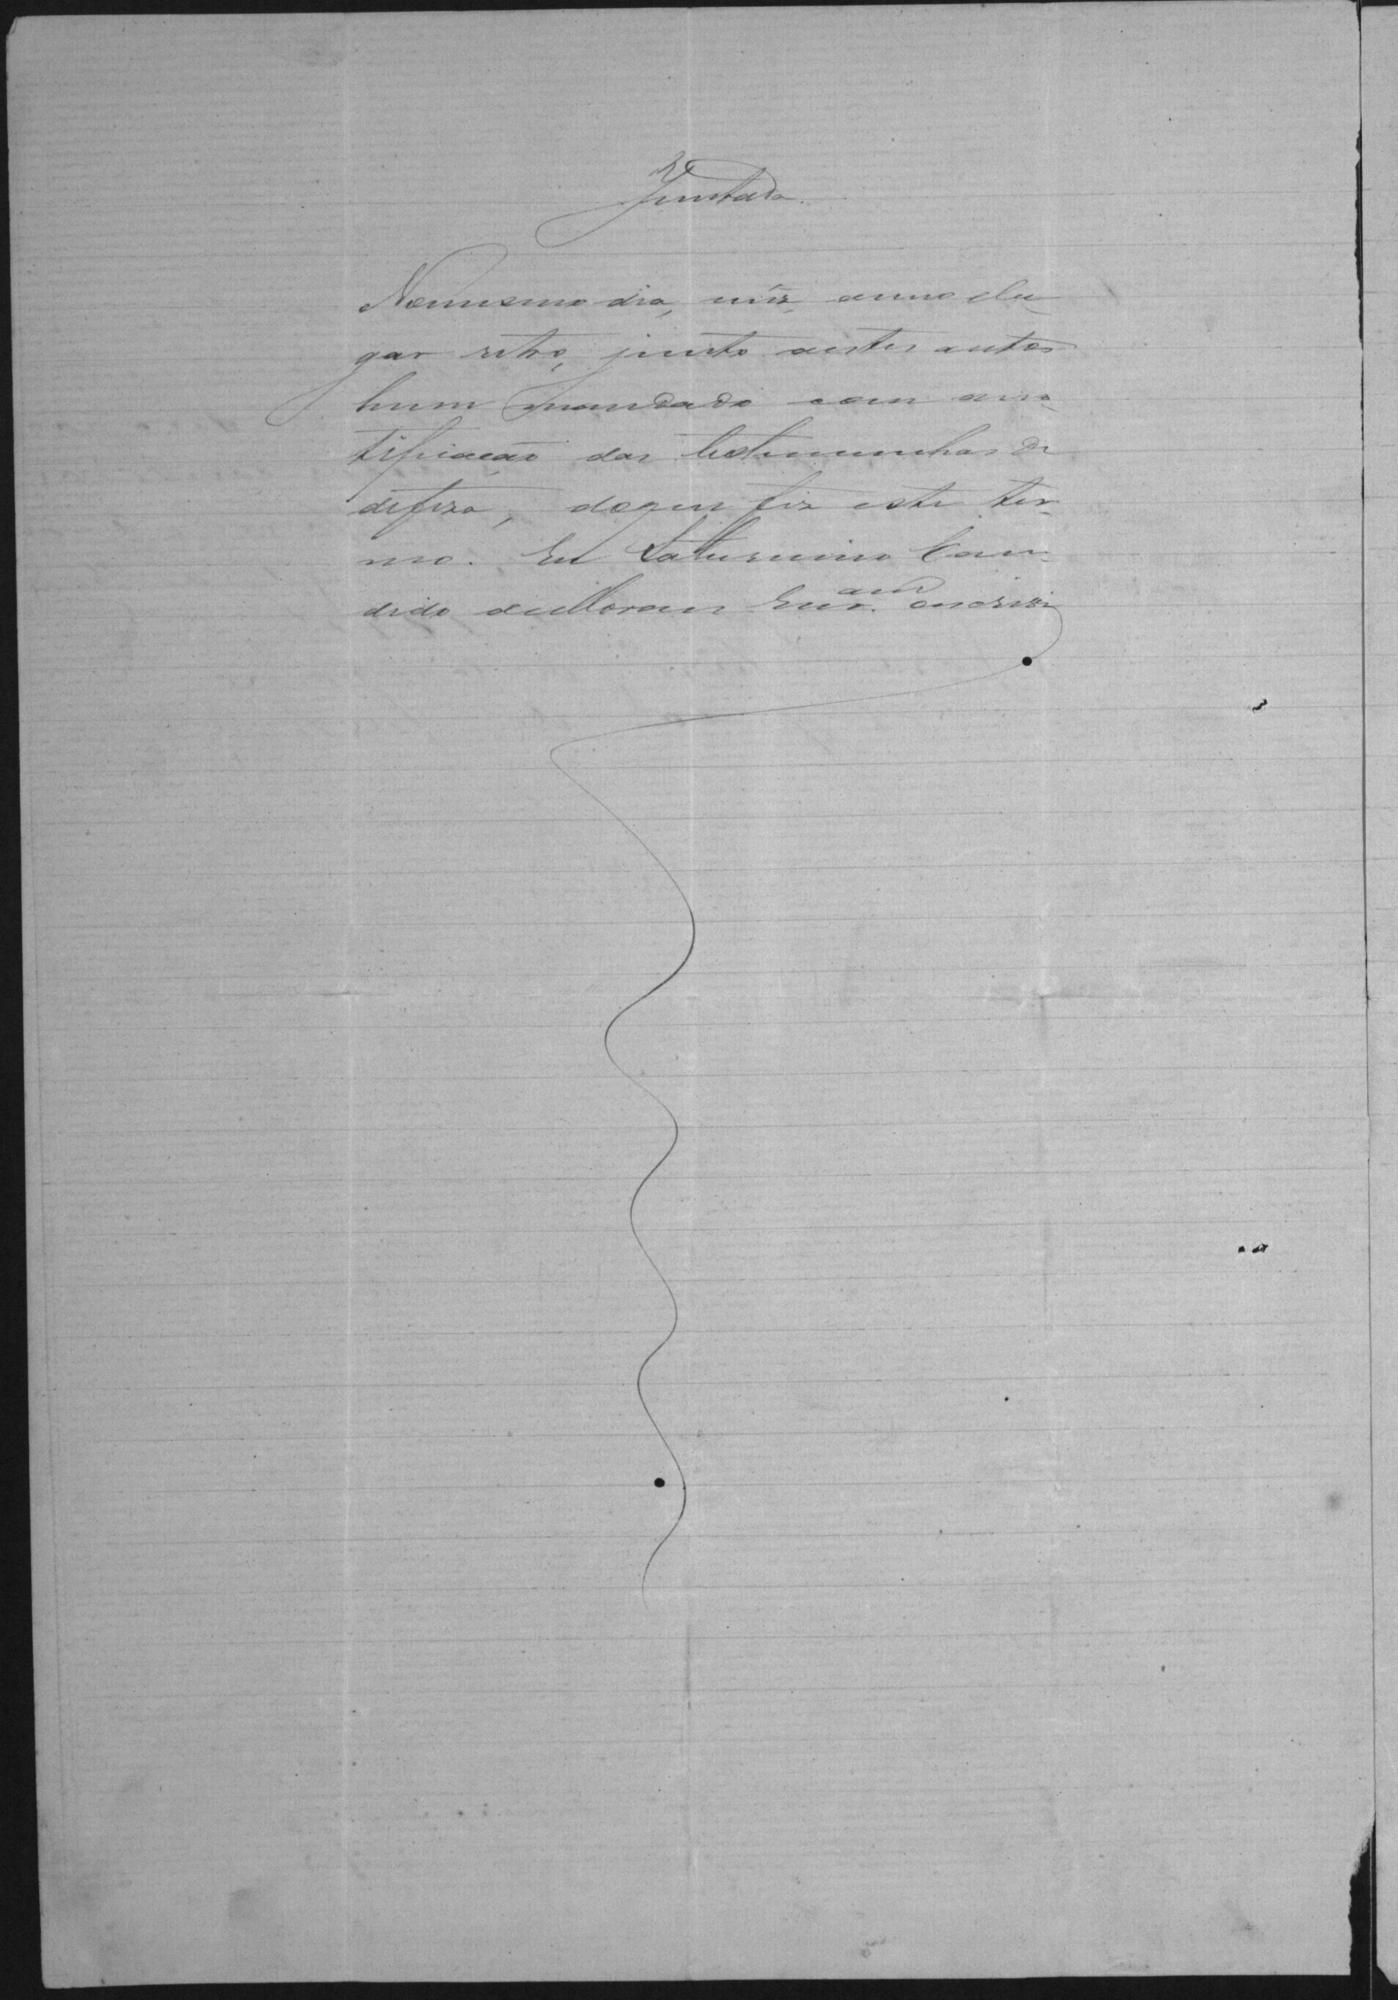 Juntada.
No mesmo dia, mês, anno e lu-
gar retro, junto a estes autos
hum mandado com a no-
tificação das testemunhas de
defeza, do que fiz este ter-
mo. Eu Saturnino Can-
dido de Moraes Escr.am o escrivi